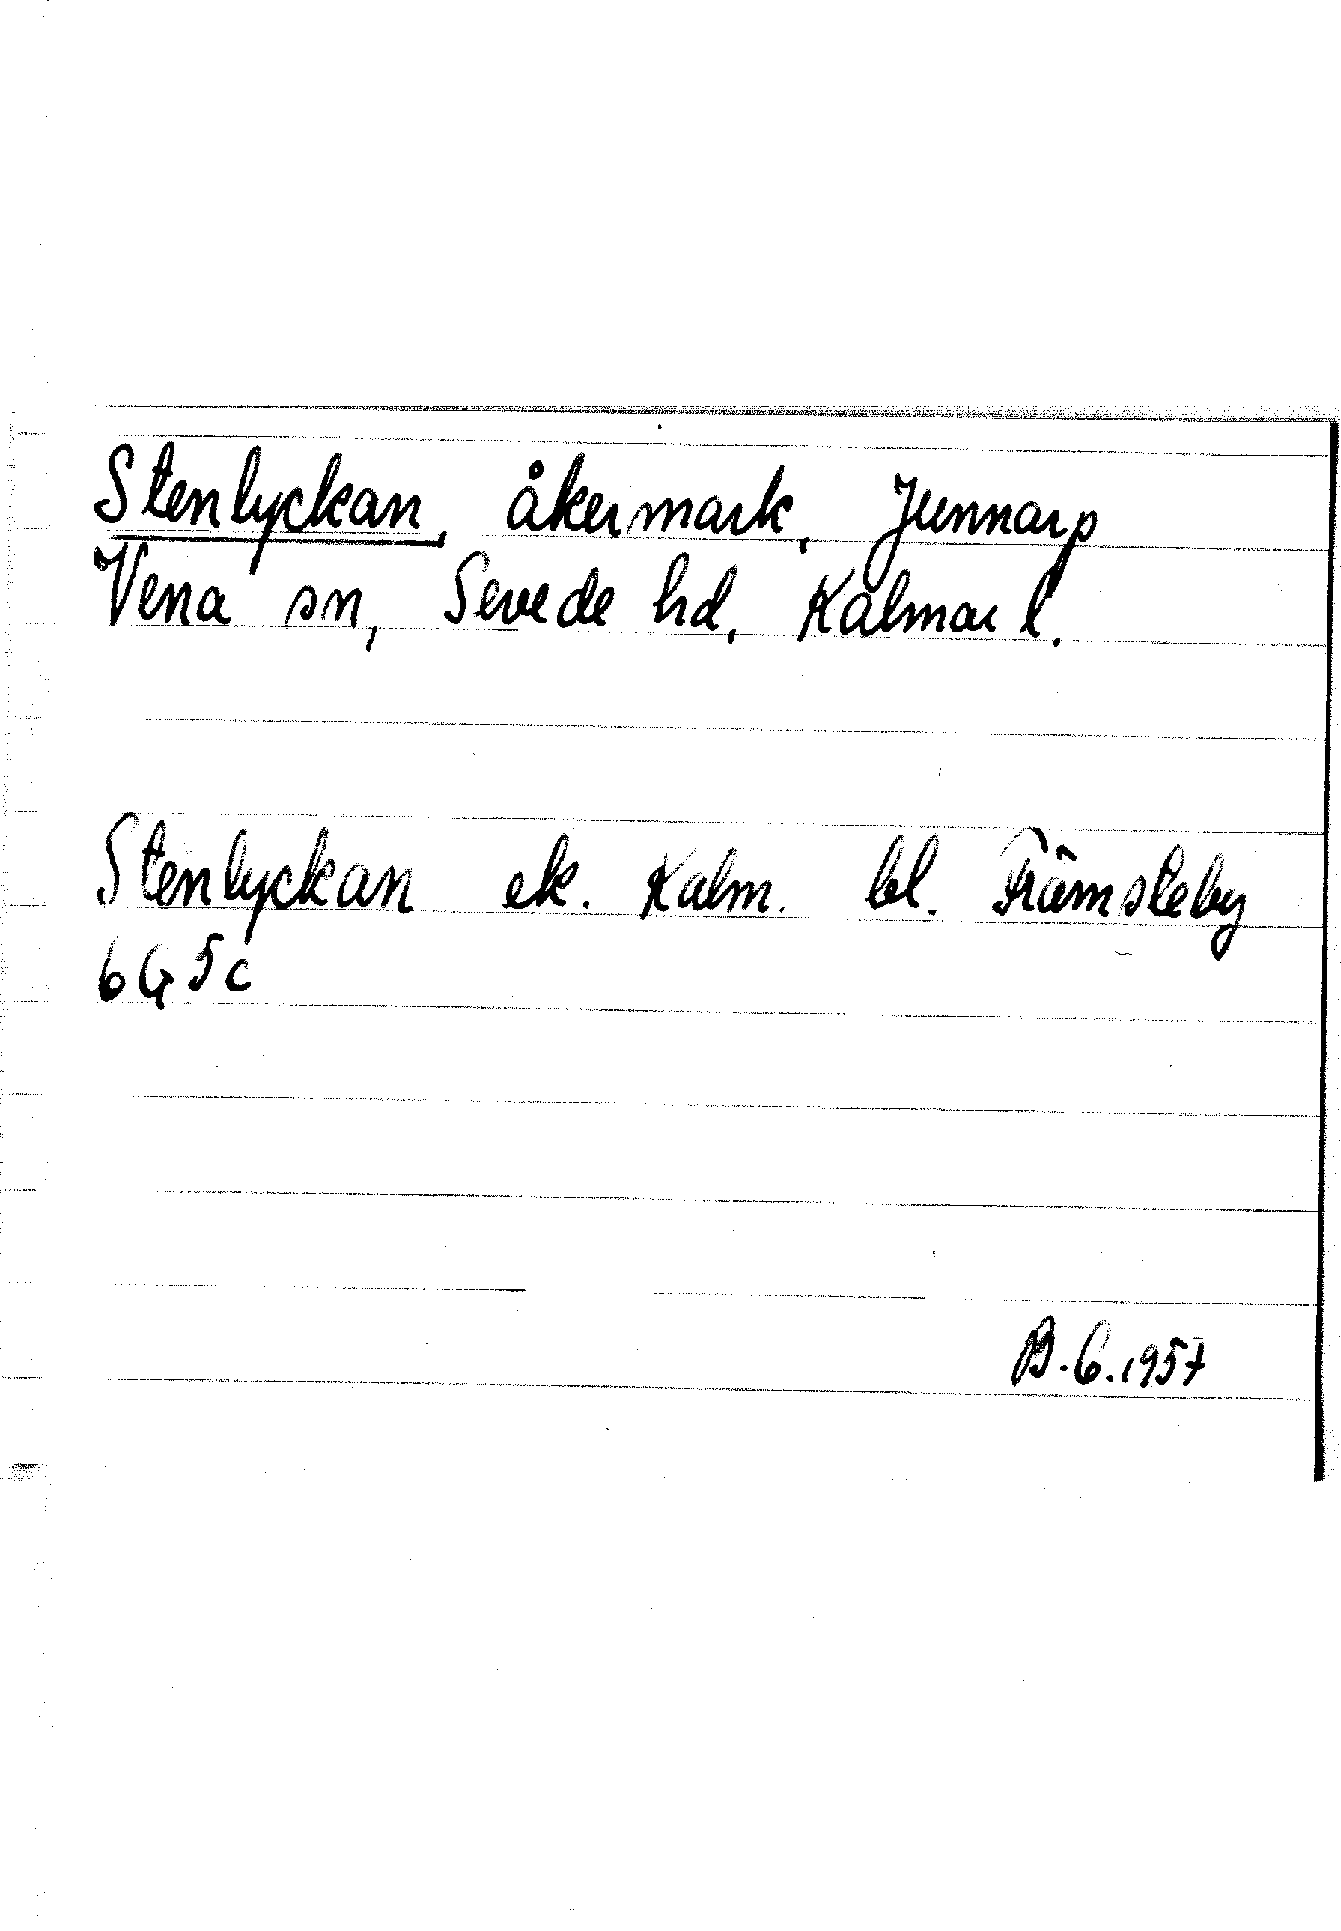 Stenlyckan, åkermark, Junnarp
Vena sn, Sevede hd, Kalmar l.
Stenlyckan ek. Kalm. bl. Främsteby
6G5c
B.G.1957